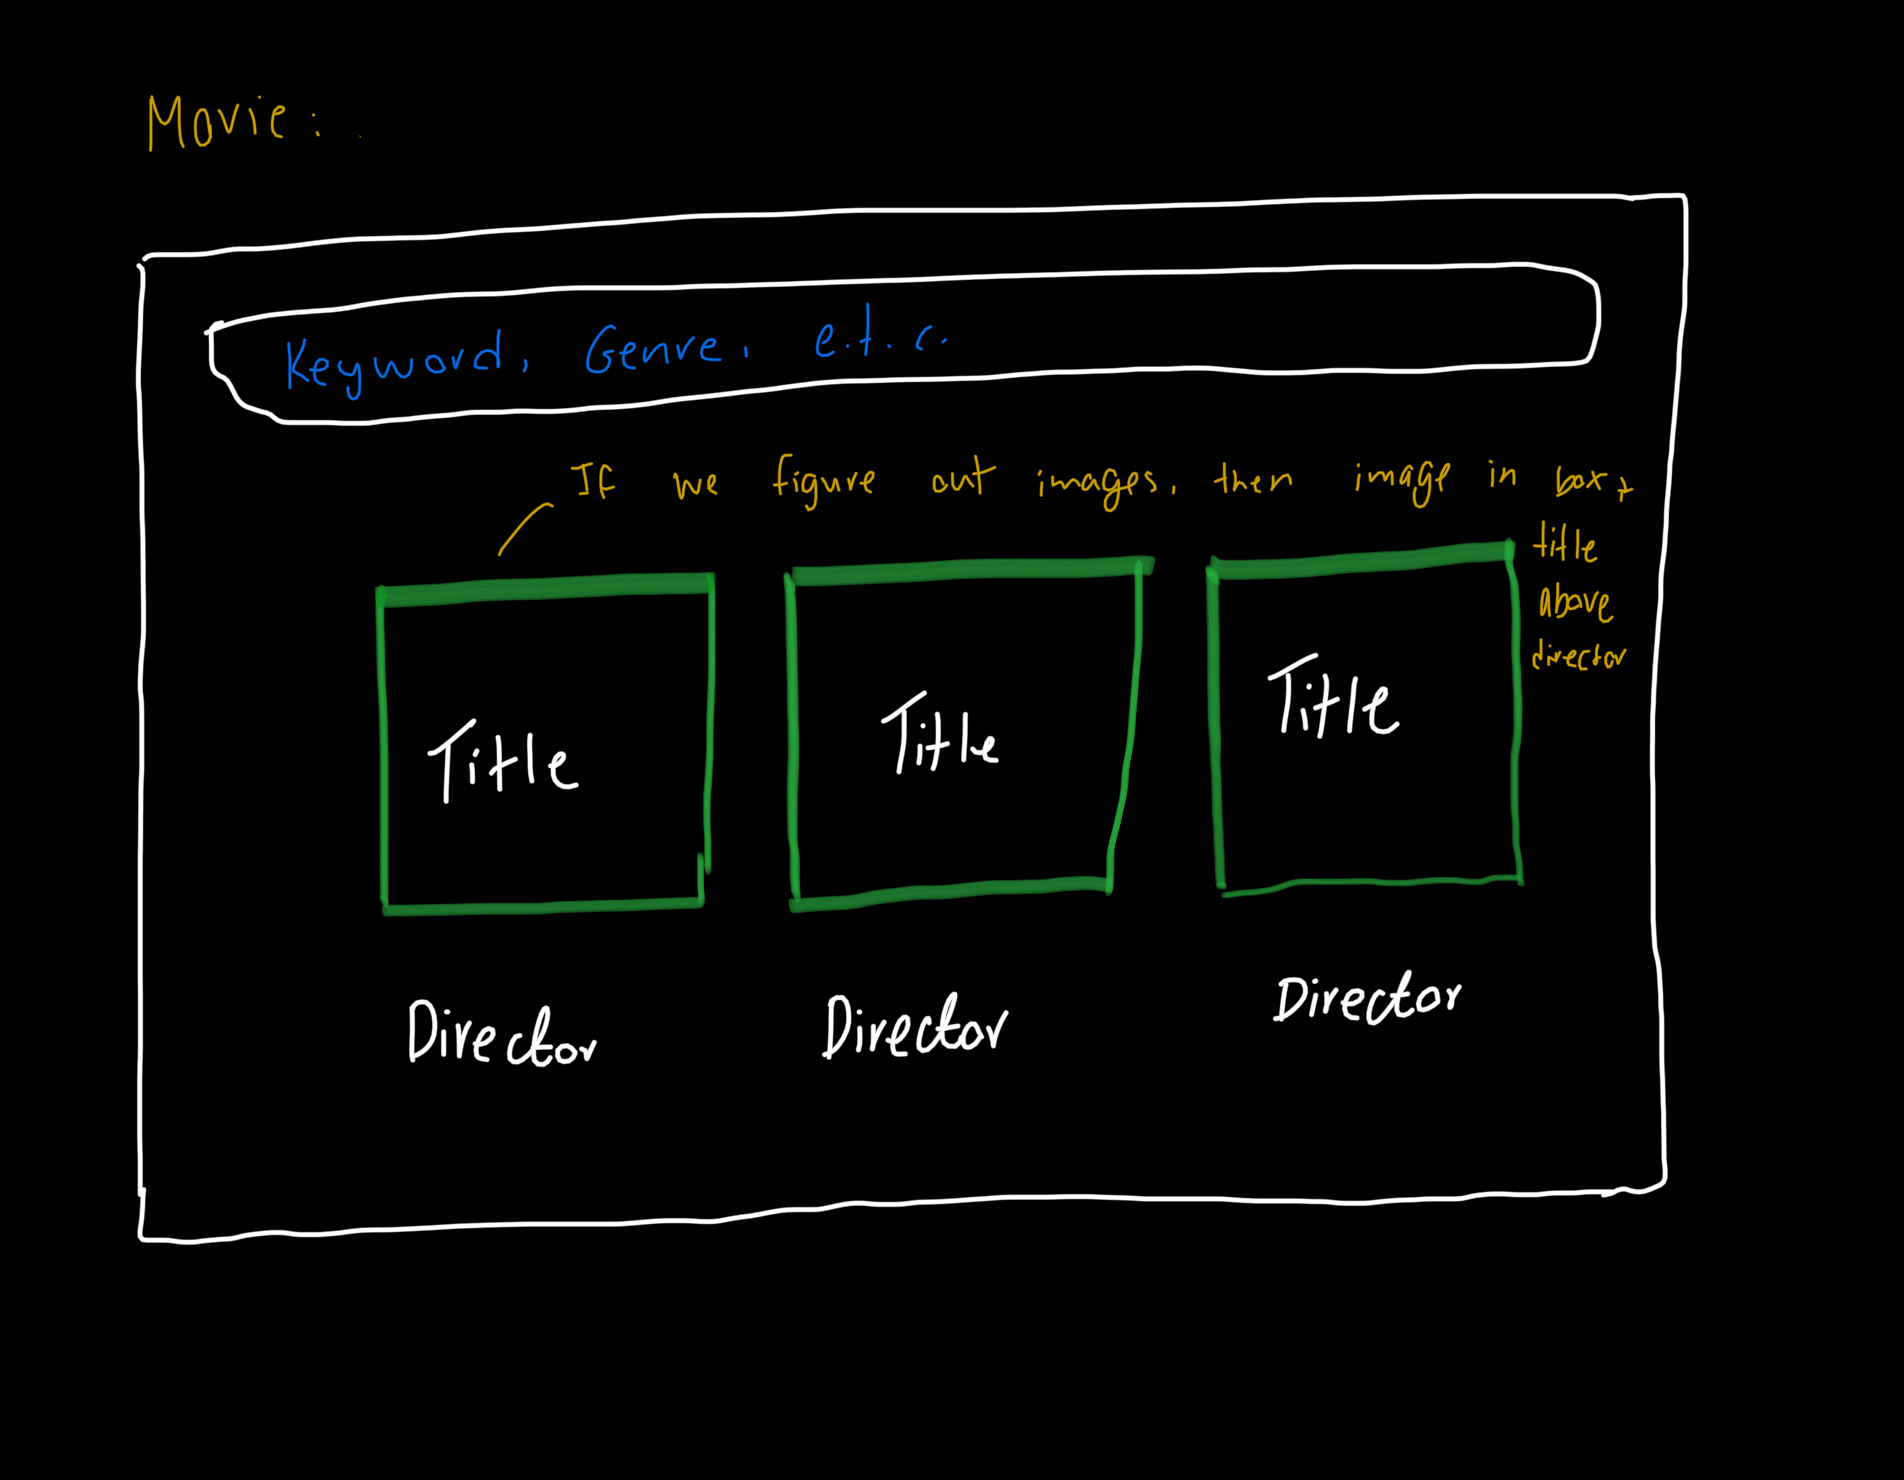 Movie:
Keyword, Genre, e.t.c.
If we figure out images, then image in box +
title
above
director
Title Title Title
Director Director Director